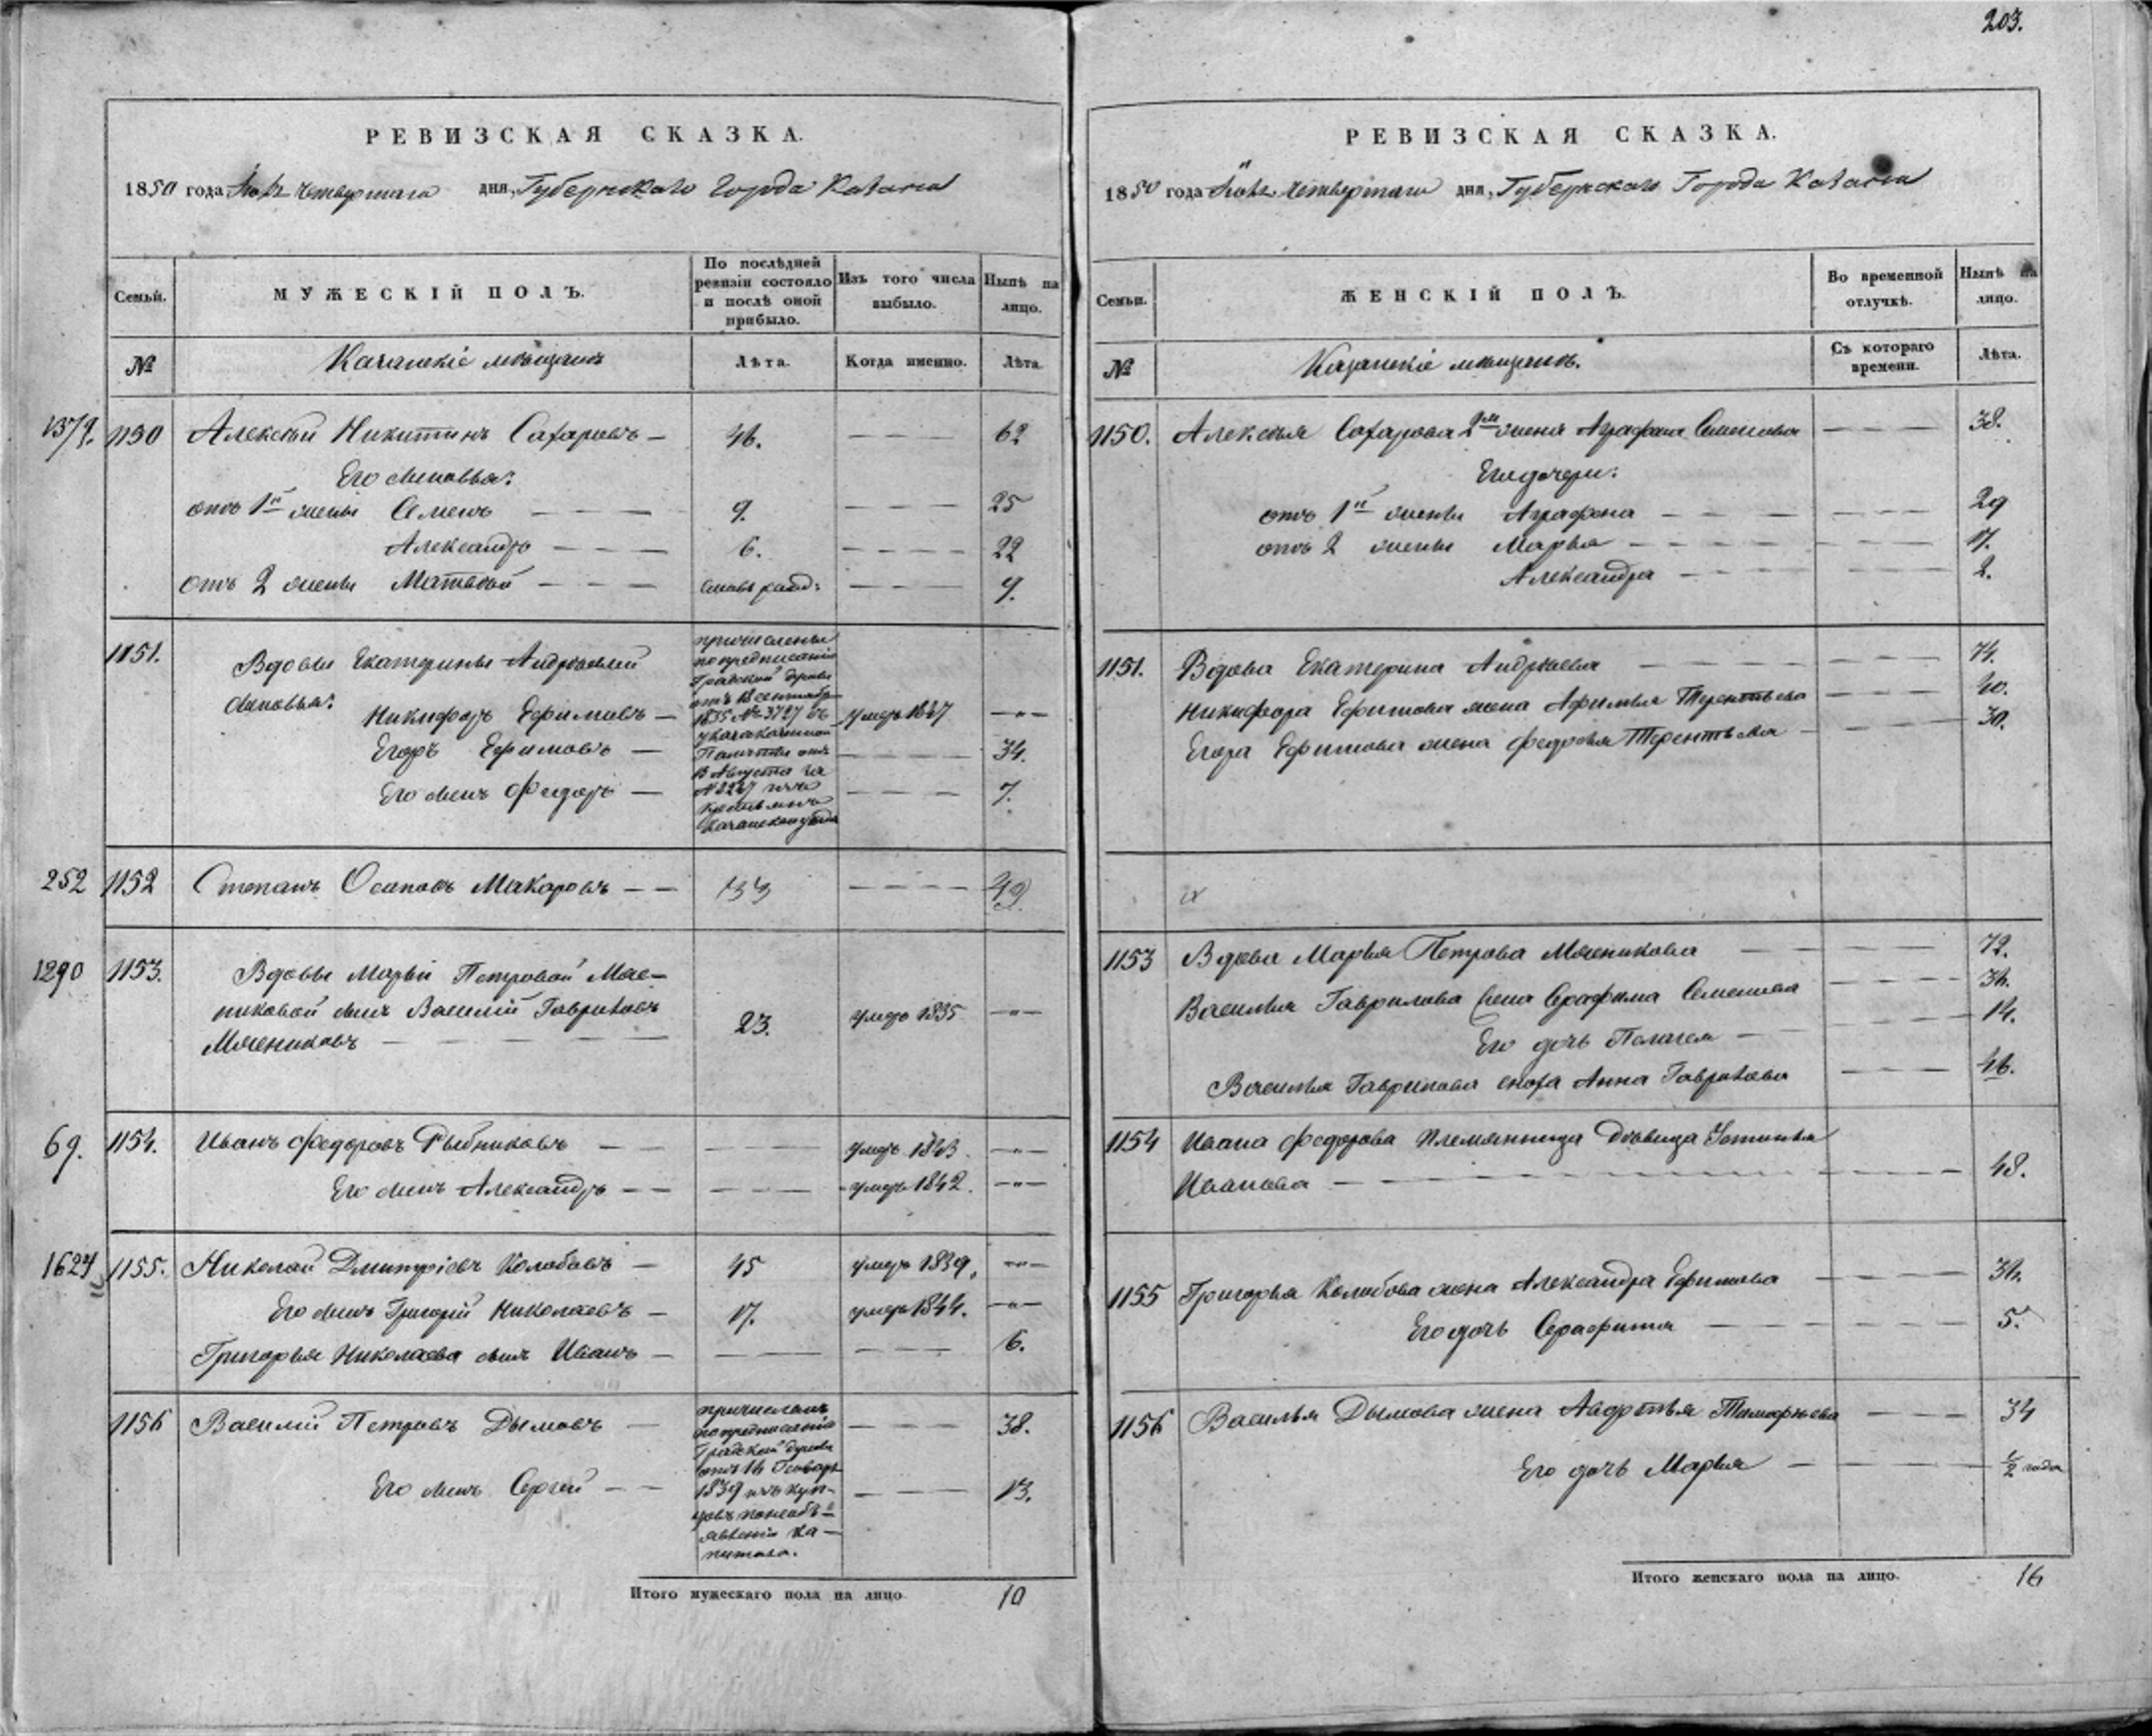 203.
РЕВИЗСКАЯ СКАЗКА.
1850 года четвертаго дня, Губернскаго Города Казани
Семьи.
МУЖЕСКІЙ ПОЛЪ.
По послѣдней ревизіи состояло и послѣ оной прибыло.
Изъ того числа выбыло.
Нынѣ на лицо.
№
Казанскіе мѣщане
Лѣта.
Когда именно.
Лѣта.
1379. 1150 Алексѣй Никитинъ Сахаровъ — 46. — — — 62
Его сыновья:
отъ 1й жены Семенъ — — — 9. — — — — 25
Александръ — — — 6. — — — — 22
отъ 2 жены Матвѣй — — — — — — 9.
1151. Вдовы Екатерины Андреевой
сыновья:
причислены
по предписанію
Градской думы
отъ 18 сентября
1835 № 3727
Палаты отъ
Августа за
Никифоръ Ефимовъ — умеръ 1847 —"—
Егоръ Ефимовъ — — — — — 34.
Его сынъ Федоръ — — — — — 7.
252 1152 Степанъ Осиповъ Макаровъ — — 33 — — — — 49.
1290 1153. Вдовы Марьи Петровой Мяс-
никовой сынъ Василій Гавриловъ
Мясниковъ — — — — — 23. умеръ 1835 —"—
69. 1154. Иванъ Федоровъ Рыбниковъ — — — — — умеръ 1843. —"—
Его сынъ Александръ — — — — — умеръ 1842. —"—
1624 1155. Николай Дмитріевъ Колобовъ — 45 умеръ 1839. —"—
Его сынъ Григорій Николаевъ — 17. умеръ 1844. —"—
Григорья Николаева сынъ Иванъ — — — — — — — 6.
1156 Василій Петровъ Дымовъ — — — — — 38.
Его сынъ Сергѣй — — — — — — 13.
причисленъ
по предписанію
Градской думы
отъ 14 Генваря
1839 изъ куп-
цовъ по необъ-
явленію ка-
питала.
Итого мужескаго пола на лицо 10
РЕВИЗСКАЯ СКАЗКА.
1850 года четвертаго дня, Губернскаго Города Казани
Семьи.
ЖЕНСКІЙ ПОЛЪ.
Во временной отлучкѣ.
Нынѣ на лицо.
№
Казанскіе мѣщане.
Съ котораго времени.
Лѣта.
1150. Алексѣя Сахарова 2я жена Аграфена Семенова — — — 38.
Его дочери:
отъ 1й жены Аграфена — — — — — — 29
отъ 2 жены Марья — — — — — — 17.
Александра — — — — — — 2.
1151. Вдова Екатерина Андреева — — — — — — — 74.
Никифора Ефимова жена Афимья Терентьева — — — — 40.
Егора Ефимова жена Федосья Терентьева — — — — 30.
1153 Вдова Марья Петрова Мясникова — — — — — 72.
Василья Гаврилова жена Серафима Семенова — — — — 34.
Его дочь Пелагея — — — — — 14.
Василья Гаврилова сноха Анна Гаврилова — — — — 46.
1154 Ивана Федорова племянница дѣвица Устинья
Иванова — — — — — — — — — 48.
1155 Григорья Колобова жена Александра Ефимова — — — — 34.
Его дочь Серафима — — — — — — 5.
1156 Василья Дымова жена Авдотья Тимофѣева — — — 34
Его дочь Марья — — — — — ½ года
Итого женскаго пола на лицо. 16